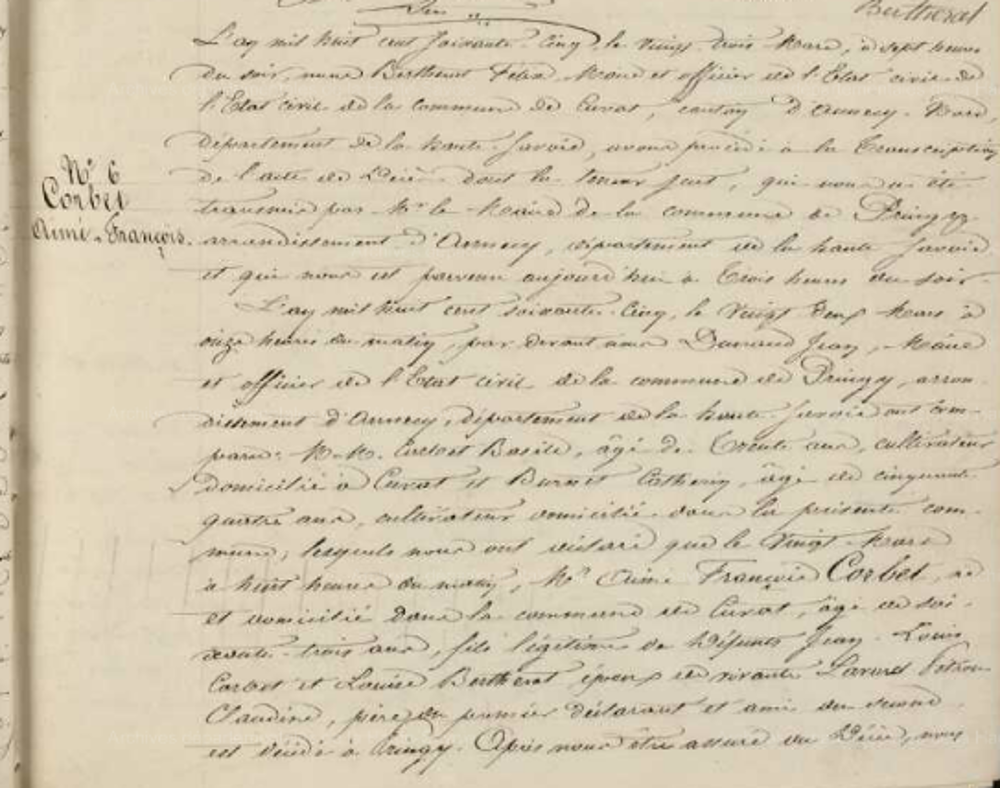 Bertherat
N° 6
Corbet
Aimé-François.
L'an mil huit cent soixante-cinq, le vingt trois Mars, à sept heures
du soir, nous Bertherat Félix Maire et officier de l'Etat civil de
l'Etat civil de la commune de Cuvat, canton d'Annecy-Nord,
département de la haute-Savoie, avons procédé à la transcription
de l'acte de Décès dont la teneur suit, qui nous a été
transmis par Mr le Maire de la commune de Pringy
arrondissement d'Annecy, département de la haute Savoie
et qui nous est parvenu aujourd'hui à trois heures du soir.
L'an mil huit cent soixante-cinq, le vingt deux Mars à
onze heures du matin, par devant nous Jean, Maire
et officier de l'Etat civil de la commune de Pringy, arron-
dissement d'Annecy, département de la haute-Savoie ont com-
paru: M.M. Corbet Basile, âgé de trente ans, cultivateur
domicilié à Cuvat et Burnet, âgé de cinquante
quatre ans, cultivateur domicilié dans la présente com-
mune, lesquels nous ont déclaré que le vingt Mars
à huit heures du matin, Mr Aimé François Corbet, né
et domicilié dans la commune de Cuvat, âgé de soi-
xante-trois ans, fils légitime de défunts Jean-Louis
Corbet et Louise Bertherat époux de vivante
Claudine, père du premier déclarant et ami du second
est décédé à Pringy. Après nous être assuré du Décès, nous